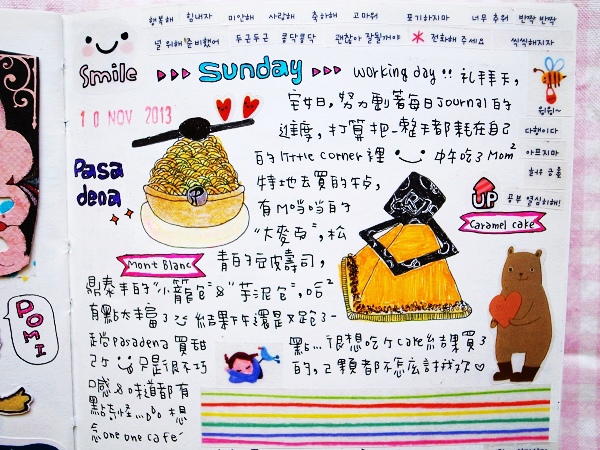 행복해 힘내자 미안해 사랑해 축하해 고마워 포기하지마 너무 추워 반짝 반짝
널 위해 준비했어 두근두근 쿵닥쿵닥 괜찮아 잘될꺼야 전화해 주세요 씩씩해지자
Smile
Sunday
working day!! 礼拜天,
10 NOV 2013
宅女日, 努力動著每日Journal的
進度, 打算把一整天都耗在自己
的little corner裡 中午吃了Mom
特地去買的午点,
有M噹噹的
"大麥包", 松
青的豆皮壽司,
鼎泰丰的"小籠包"&"芋泥包", 哈
有點太丰富了 結果下午還是又跑了一
趟Pasadena 買甜
只是很不巧
口感&味道都有
點奇怪... 想
念one one cafe
點... 很想吃
的, 2顆都不怎么討我欢
Pasa
dena
P
Mont Blanc
윙윙~
다행이다
아프지마
허유 금률
공부 열심히해!
UP
Caramel cake
POMI